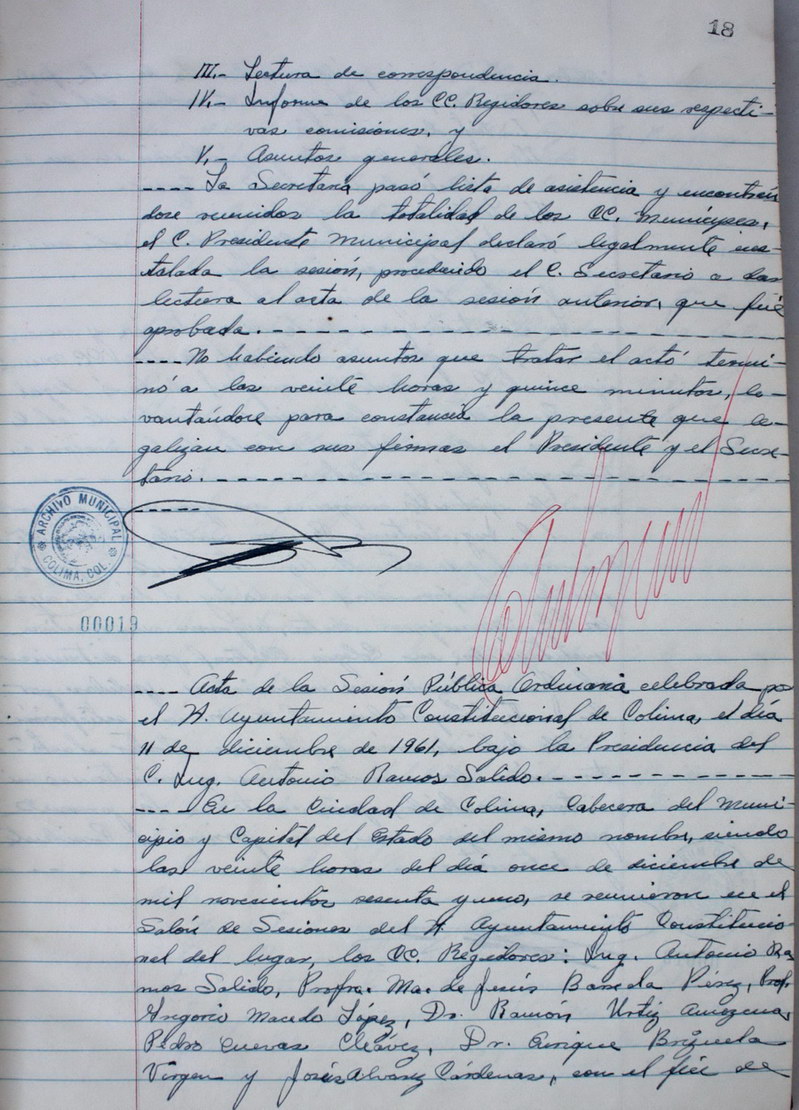 18
III.- Lectura de correspondencia.
IV.- Informe de los CC. Regidores sobre sus respecti-
vas comisiones, y
V.- Asuntos generales.
---- La Secretaría pasó lista de asistencia y encontrán
dose reunidos la totalidad de los CC. Munícipes,
el C. Presidente Municipal declaró legalmente ins-
talada la sesión, procediendo el C. Secretario a dar
lectura al acta de la sesión anterior, que fué
aprobada. - - - - - - - - - - - - - - - - - -
---- No habiendo asuntos que tratar el actó termi-
nó a las veinte horas y quince minutos, le-
vantándose para constancia la presente que le-
galizan con sus firmas el Presidente y el Secre-
tario. - - - - - - - - - - - - - - - - - - - -
-----
ARCHIVO MUNICIPAL
COLIMA, COL.
00019
---- Acta de la Sesión Pública Ordinaria celebrada po
el H. Ayuntamiento Constitucional de Colima, el día
11 de diciembre de 1961, bajo la Presidencia del
C. Ing. Antonio Ramos Salido. - - - - - - - - - -
---- En la Ciudad de Colima, Cabecera del Muni-
cipio y Capital del Estado del mismo nombre, siendo
las veinte horas del día once de diciembre de
mil novecientos sesenta y uno, se reunieron en el
Salón de Sesiones del H. Ayuntamiento Constitucio-
nal del lugar, los CC. Regidores: Ing. Antonio Ra
mos Salido, Profra. Ma. de Jesús Barreda Pérez, Prof.
Gregorio Macedo López, Dr. Ramón Urtiz Amezcua,
Pedro Cuevas Chávez, Dr. Enrique Brizuela
Virgen y Jesús Alvarez Cárdenas, con el fin de